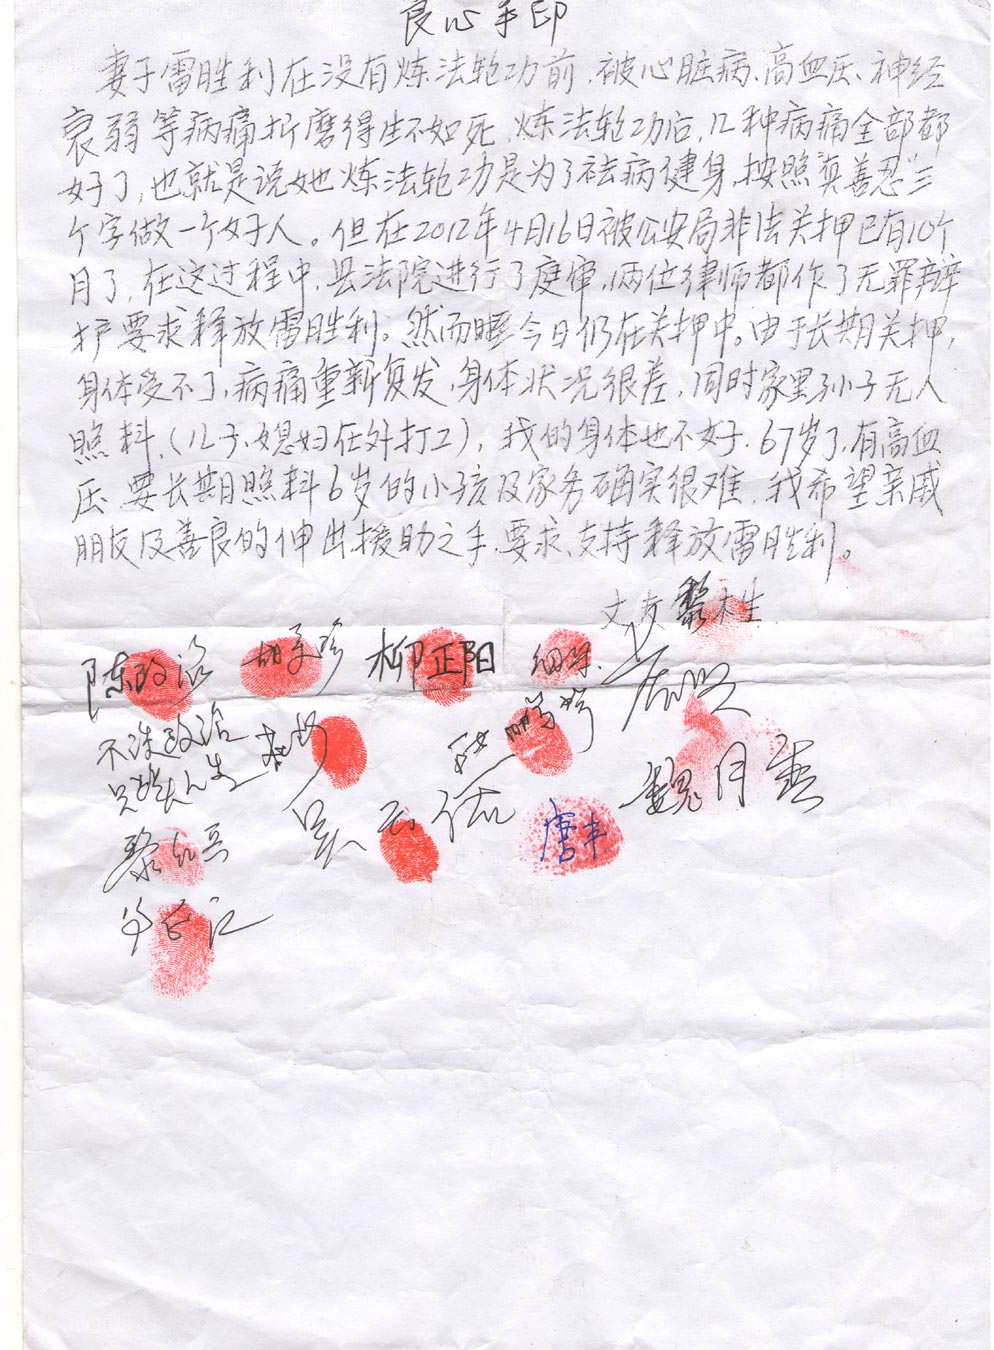 良心手印
妻子雷胜利在没有炼法轮功前,被心脏病、高血压、神经
衰弱等病痛折磨得生不如死,炼法轮功后,几种病痛全部都
好了,也就是说她炼法轮功是为了祛病健身,按照"真善忍"三
个字做一个好人。但在2012年4月16日被公安局非法关押已有10个
月了,在这过程中,县法院进行了庭审,两位律师都作了无罪辩
护要求释放雷胜利。然而今日仍在关押中。由于长期关押,
身体受不了,病痛重新复发,身体状况很差,同时家里孙子无人
照料,(儿子、媳妇在外打工),我的身体也不好,67岁了,有高血
压,要长期照料6岁的小孩及家务确实很难,我希望亲戚
朋友及善良的伸出援助之手,要求、支持释放雷胜利。
丈夫 黎
陈政 柳正阳
不涉政治
魏月
唐丰
黎